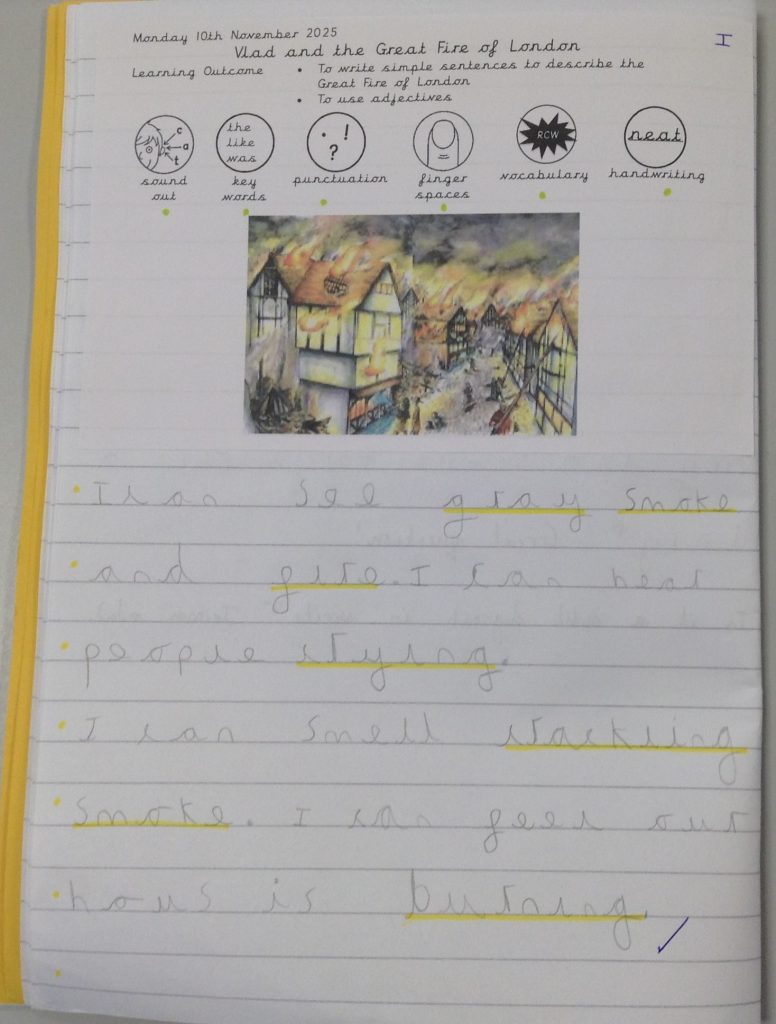 Monday 10th November 2025
I
Vlad and the Great Fire of London
Learning Outcome • To write simple sentences to describe the
Great Fire of London
• To use adjectives
c
a
t
the
like
was
. ! ?
RCW
neat
sound out
key words
punctuation
finger spaces
vocabulary
handwriting
I can see gray smoke
and fire. I can hear
people crying.
I can smell crackling
smoke. I can feel our
hous is burning.